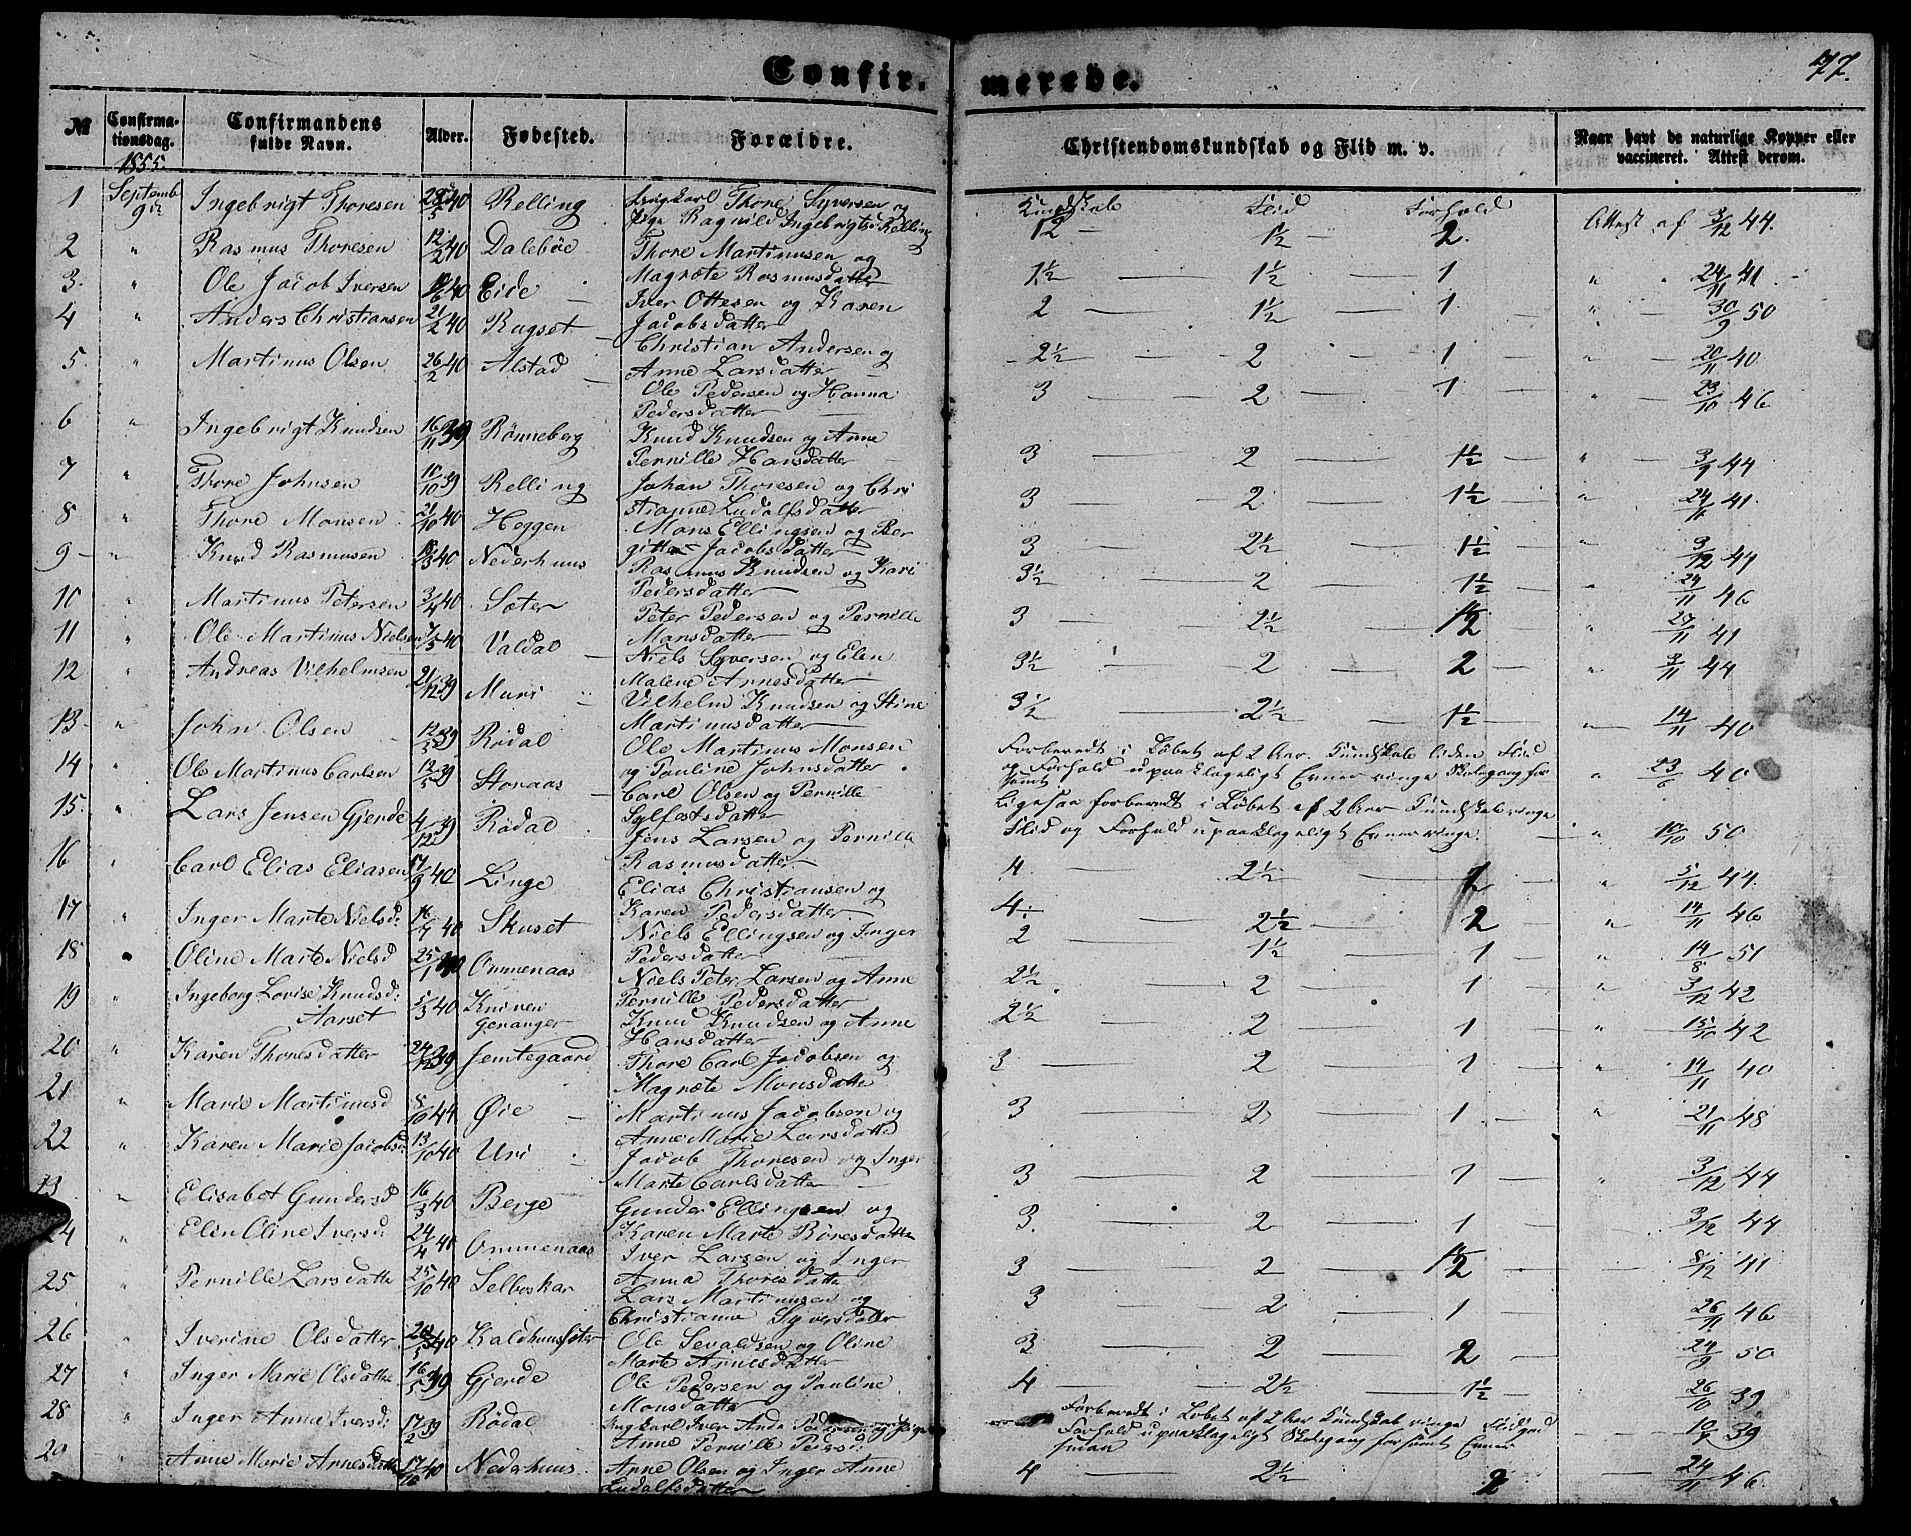 Confir. merede. 77.
No Confirmationsdag. Confirmandens fulde Navn. Alder. Fødested. Forældre. Christendomskundskab og Flid m. v. Naar havt de naturlige Kopper eller vaccineret. Attest derom.
1855.
Kundskab Flid Forhold
1 Septemb 9de Ingebrigt Thoresen 5 40 Relling Ungkarl Thore Syversen og 1½ 2. Attest af 3/12 44.
Pige Ragnild Ingebrigtsd Relling
2 " Rasmus Thoresen 12/2 40 Dalebøe Thore Martinusen og 1½ — 1½ — 1 " " 24/11 41
Magrete Rasmusdatter
3. " Ole Jacob Iversen 40 Eide Iver Ottesen og Karen 2 — 1½ — 1 " — 30/9 50
Jacobsdatter
4 " Anders Christiansen 21/2 40 Rugset Christian Andersen og 2½ — 2 — 1 " — 20/11 40
Anne Larsdatter
5. " Martinus Olsen 26/2 40 Alstad Ole Pedersen og Hanna 3 — 2 — 1 " — 23/10 46
Pedersdatter
6 " Ingebrigt Knudsen 16/11 39 Rønneberg Knud Knudsen og Anne 3 — 2 — 1½ " — 3/9 44
Pernille Hansdatter
7 " Thore Johnsen 10 39 Relling Johan Thoresen og Chri 3 — 2 — 1½ " 24/11 41.
stianne Ludalfsdatter
8 " Thore Monsen 21/10 40 Heggen Mons Ellingsen og Ber 3 — 2½ — 1½ " 3/12 44
gitte Jacobsdatter
9 " Knud Rasmusen 3 40 Nederhuus Rasmus Knudsen og Kari 3½ 2 — 1½ " 24/11 46
Pedersdatter
10 " Martinus Petersen 3/4 40 Søter Peter Pedersen og Pernille 3 — 2½ " 24/11 41
Monsdatter
11 " Ole Martinus Nielsen 5 40 Valdal Niels Syversen og Elen 3½ 2 — 2 " 44
Malene Arnesdatter
12 " Andreas Vilhelmsen 21/12 39 Muri Vilhelm Knudsen og Stine 3½ — 2½ — 1½ — 14/11 40
Martinusdatter
13 " John Olsen 12 39 Rødal Ole Martinus Monsen Forberedt i Løbet af 2 Aar. Kundskab liden Flid " 23/6 40
og Pauline Johnsdatter og Forhold upaaklageligt Evner ringe Skolegang forsømt
14 " Ole Martinus Carlsen 12/5 39 Storaas Carl Olsen og Pernille Ligesaa forberedt i Løbet af 2 Aar Kundskab ringe " 10 50
Sylfestsdatter Flid og Forhold upaaklageligt Evner ringe.
15. " Lars Jensen Gjerde 4/12 39 Rødal Jens Larsen og Pernille 4 — 2½ — 2 " 5/12 44.
Rasmusdatter
16 " Carl Elias Eliasen 17/9 40 Linge Elias Christiansen og 4 — 2½ — 2 " 14/11 46
Karen Pedersdatter
17 " Inger Marte Nielsd: 16 40 Skuset Niels Ellingsen og Inger 2 — 1½ — 1 " 14/8 51
Pedersdatter
18 " Oline Marte Nielsd 25/1 40 Ommenaas Niels Peter Larsen og Anne 2½ — 2 — 1 " 3/12 42
Pernille Pedersdatter
19 " Ingeborg Lovise Knudsd: 3 40 Knivsen Knud Knudsen og Anne 2½ — 2 — 1 " — 15/10 42
Aarset Geranger Hansdatter
20 " Karen Thoresdatter 24/12 39 Jemtegaard Thore Carl Jacobsen og 3 — 2 — 1 " 14/11 40
Magrete Monsdatte
21 " Marie Martinusd 8/10 44 Øie Martinus Jacobsen og 3 — 2 — 1 " 21/11 48
Anne Marie Larsdatte
22 " Karen Marie Jacobsd: 13/10 40 Uri Jacob Thoresen og Inger 3 — 2 — 1 " 3/12 44
Marte Carlsdatter
23 " Elisabet Gundersd 16/3 40 Berge Gunder Ellingsen og 3. — 2 — 1 3/12 44
Karen Marte Børesdatter
24 " Elen Oline Iversd: 24/4 40 Ommenaas Iver Larsen og Inger 3 — 2 8/12 41
Anna Thoresdatte
25 " Pernille Larsdatte 25/10 40 Selboskar Lars Martinusen og 3 — 2 — 1 26/11 46
Christianne Syversdatter
26 " Iverine Olsdatter 40 Kaldhuussøter Ole Sevaldsen og Oline 3 — 2 — 2 24/9 50
Marte Arnesdatter
27 " Inger Marie Olsdatte 16/5 39 Gjerde Ole Pedersen og Pauline 4 — 2½ — 1½ 26/10 39
Monsdatter
28 " Inger Anna Iversd: 17/2 39 Rødal Ungkarl Iver Pedersen og Pige Forberedt i Løbet af 2 Aar Kundskab ringe Flid god 10 39
Anne Pernille Pedersd: Forhold upaaklageligt Skolegang forsømt Evner
29 " Anne Marie Arnesdatte 17/10 40 Nederhuus Olsen og Inger Anne 4 — 2½ — 2 — 24/11 46
Ludalfsdatter